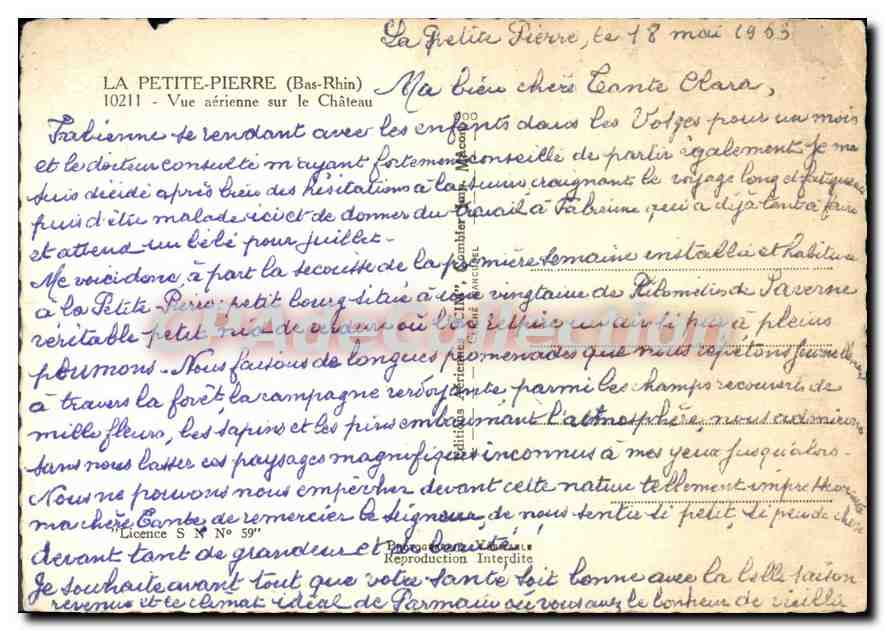 La Petite Pierre, le 18 mai 1963
LA PETITE-PIERRE (Bas-Rhin)
10211 - Vue aérienne sur le Château
Ma bien chère Tante Clara,
Fabienne se rendant avec les enfants dans les Vosges pour un mois
et le docteur consulté m'ayant fortement conseillé de partir également je me
suis décidé après bien des hésitations à la suivre craignant le voyage long et fatiguant
puis d'être malade ici et de donner du travail à Fabienne qui a déjà tant à faire
et attend un bébé pour juillet -
Me voici donc, à part la secousse de la première semaine installée et habituée
à la Petite Pierre petit bourg situé à une vingtaine de Kilomètres de Saverne
véritable petit nid de verdure où l'on respire un air si pur à pleins
poumons - Nous faisons de longues promenades que nous répétons journellement
à travers la forêt, la campagne verdoyante, parmi les champs recouverts de
mille fleurs, les sapins et les pins embaumant l'atmosphère, nous admirons
sans nous lasser ces paysages magnifiques inconnus à mes yeux jusqu'alors -
Nous ne pouvons nous empêcher devant cette nature tellement impressionnante
ma chère Tante, de remercier le Seigneur, de nous sentir si petit, si peu de chose
"Licence S N N° 59"
devant tant de grandeur et de beauté
Reproduction Interdite
Je souhaite avant tout que votre santé soit bonne avec la belle saison
revenue et le climat idéal de Parmain où vous avez le bonheur de vieillir
Editions Aériennes "CIM", Combier Imp. Mâcon
CPAdeCollection